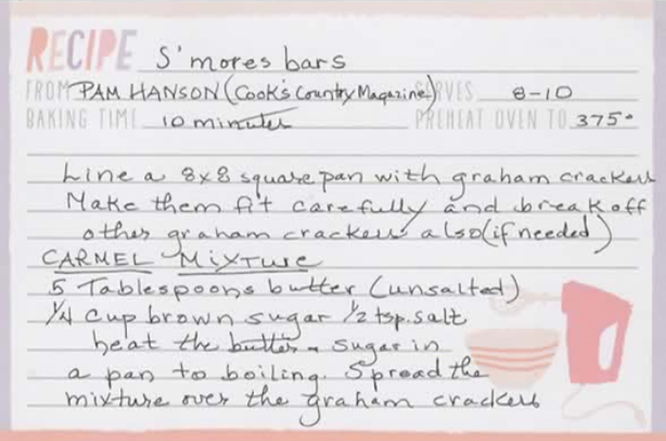 RECIPE S'mores bars
FROM PAM HANSON (Cook's Country Magazine) SERVES 8-10
BAKING TIME 10 minutes PREHEAT OVEN TO 375°
Line a 8x8 square pan with graham crackers
Make them fit carefully and break off
other graham crackers also (if needed)
CARMEL MIXTURE
5 Tablespoons butter (unsalted)
1/4 cup brown sugar 1/2 tsp. salt
heat the butter & sugar in
a pan to boiling. Spread the
mixture over the graham crackers